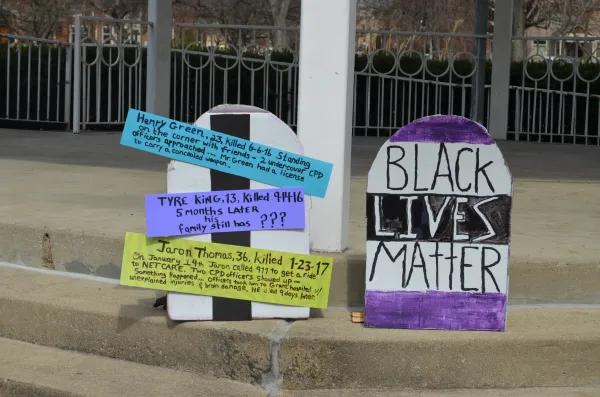 Henry Green, 23, Killed 6-6-16 Standing
on the corner with friends - 2 undercover CPD
officers approached ... Mr. Green had a license
to carry a concealed weapon.
TYRE KING, 13, KILLED 9-14-16
5 MONTHS LATER
his
family still has ???
Jaron Thomas, 36, Killed 1-23-17
On January 14th Jaron called 911 to get a ride
to NETCARE. Two CPD officers showed up -
Something happened... officers took him to Grant hospital w/
unexplained injuries & brain damage. HE died 9 days later!
BLACK
LIVES
MATTER